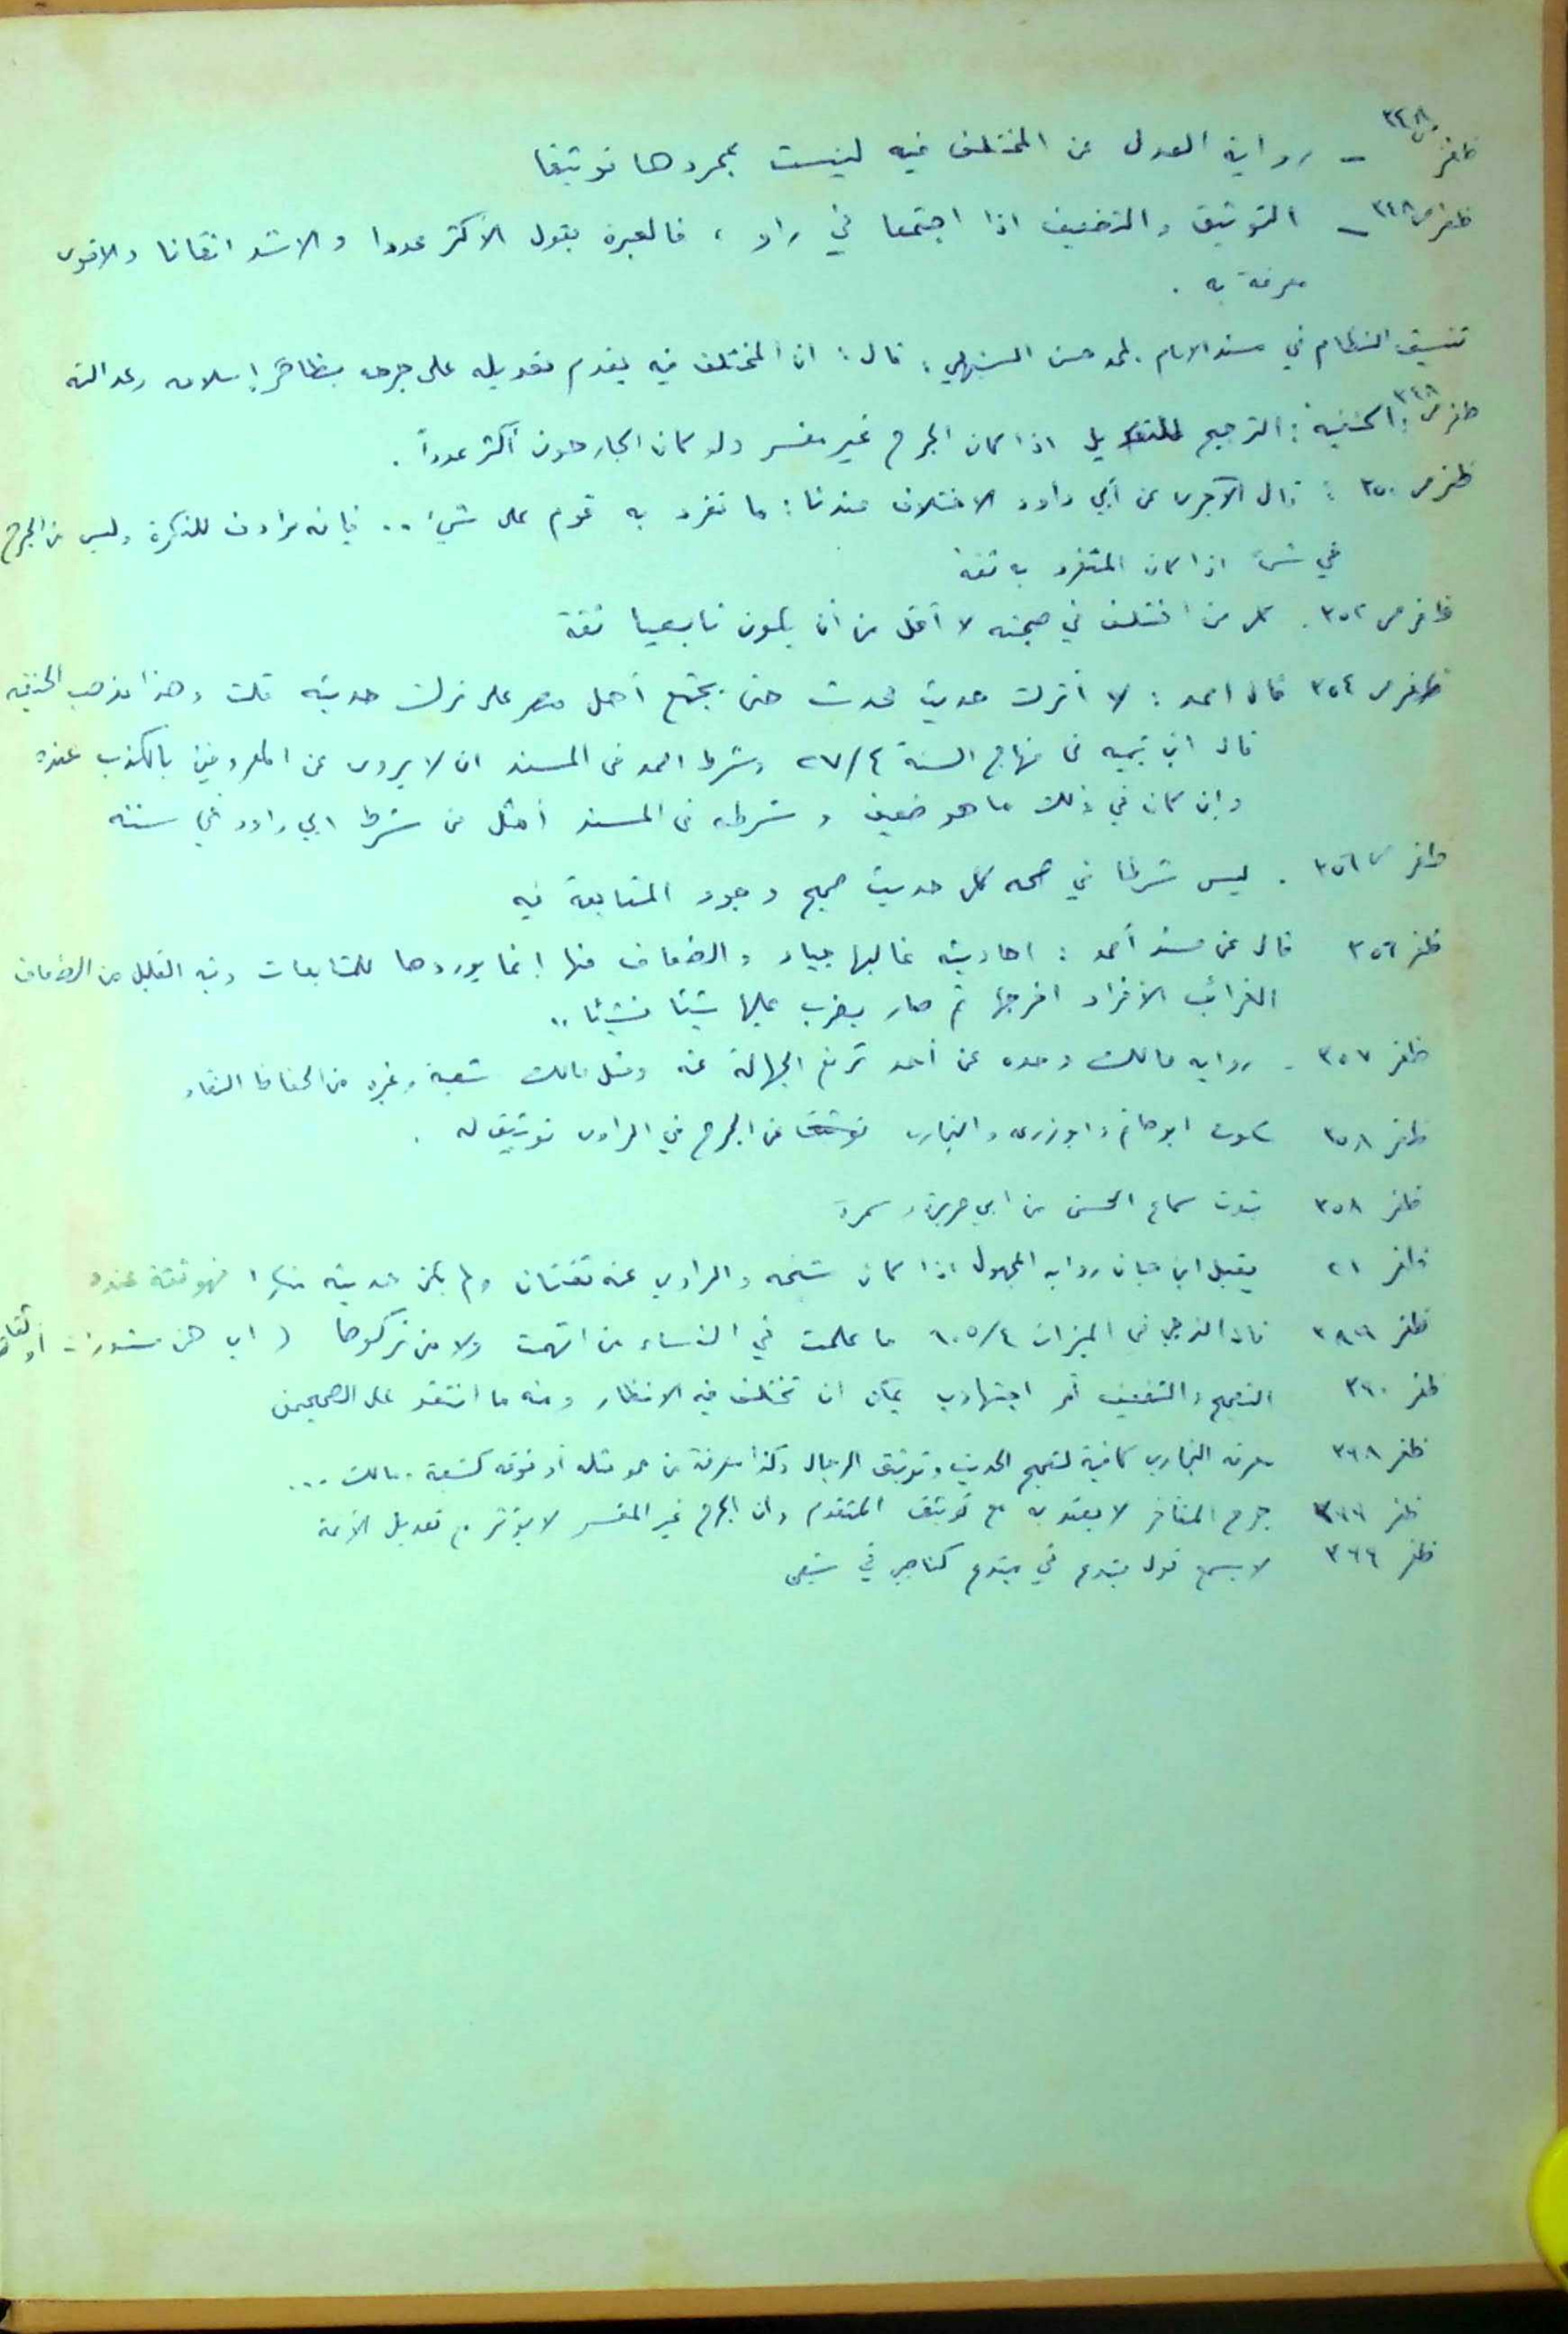 ظفر ص ٣٤٨ - رواية العدل عن المختلف فيه ليست بمجردها توثيقا
ظفر ص ٣٤٨ - التوثيق والتضعيف اذا اجتمعا في راو ، فالعبرة بقول الأكثر عددا والاشد اتقانا والاقوى
معرفة به .
تنسيق النظام في مسند الامام لمحمد حسن السنبهلي : قال : ان المختلف فيه يقدم تعديله على جرحه بظاهر إسلامه وعدالته
ظفر ص ٣٤٨ : الحنفية : الترجيح للتعديل اذا كان الجرح غير مفسر ولو كان الجارحون أكثر عدداً .
ظفر ص ٣٥٠ : قال الآجرى عن أبي داود الاختلاف عندنا : ما تفرد به قوم على شيء .. فإنه مرادف للنكرة وليس من الجرح
في شئ اذا كان المتفرد به ثقة
ظفر ص ٣٥٢ . كل من اختلف في صحبته لا أقل من أن يكون تابعيا ثقة
ظفر ص ٣٥٤ قال احمد : لا أترك حديث محدث حتى يجتمع أهل مصر على ترك حديثه قلت وهذا مذهب الحنفيه
قال ابن تيميه فى منهاج السنة ٤/٢٧ وشرط احمد فى المسند ان لا يروى عن المعروفين بالكذب عنده
وإن كان في ذلك ما هو ضعيف وشرطه فى المسند أمثل من شرط ابي داود في سننه
ظفر ص ٣٥٦ . ليس شرطا في صحه كل حديث صحيح وجود المتابعة فيه
ظفر ٣٥٦ قال عن مسند أحمد : احاديثه غالبها جياد والضعاف منها إنما يوردها للمتابعات وفيه القليل من الضعاف
الغرائب الأفراد اخرجها ثم صار يضرب عليها شيئا فشيئا ..
ظفر ٣٥٧ - روايه مالك وحده عن أحد ترفع الجهالة عنه ومثل مالك شعبة وغيره من الحفاظ النقاد
ظفر ٣٥٨ سكوت ابو حاتم وابو زرعه والبخارى عن الجرح في الراوى توثيق له .
ظفر ٣٥٨ ثبوت سماع الحسن من ابي هريرة وسمرة
ظفر ٢١ يقبل ابن حبان روايه المجهول اذا كان شيخه والراوي عنه ثقتان ولم يكن حديثه منكرا فهو ثقة عنده
ظفر قال الذهبي فى الميزان ٤/٦٠٥ ما علمت في النساء من اتهمت ولا من تركوها ( اي هن مستورات أو ثقات
ظفر ٣٦٠ التصحيح والتضعيف أمر اجتهادي يمكن ان تختلف فيه الانظار ومنه ما انتقد على الصحيحين
ظفر ٣٦٨ معرفه البخاري كافية لتصحيح الحديث وتوثيق الرجال وكذا معرفة من هو مثله أو فوقه كشعبة ومالك ...
ظفر ٣٦٦ جرح المتأخر لا يعتد به مع توثيق المتقدم وان الجرح غير المفسر لا يؤثر مع تعديل الأئمة
ظفر ٣٦٦ لا يسمع قول مبتدع في مبتدع كناصبي في شيعى